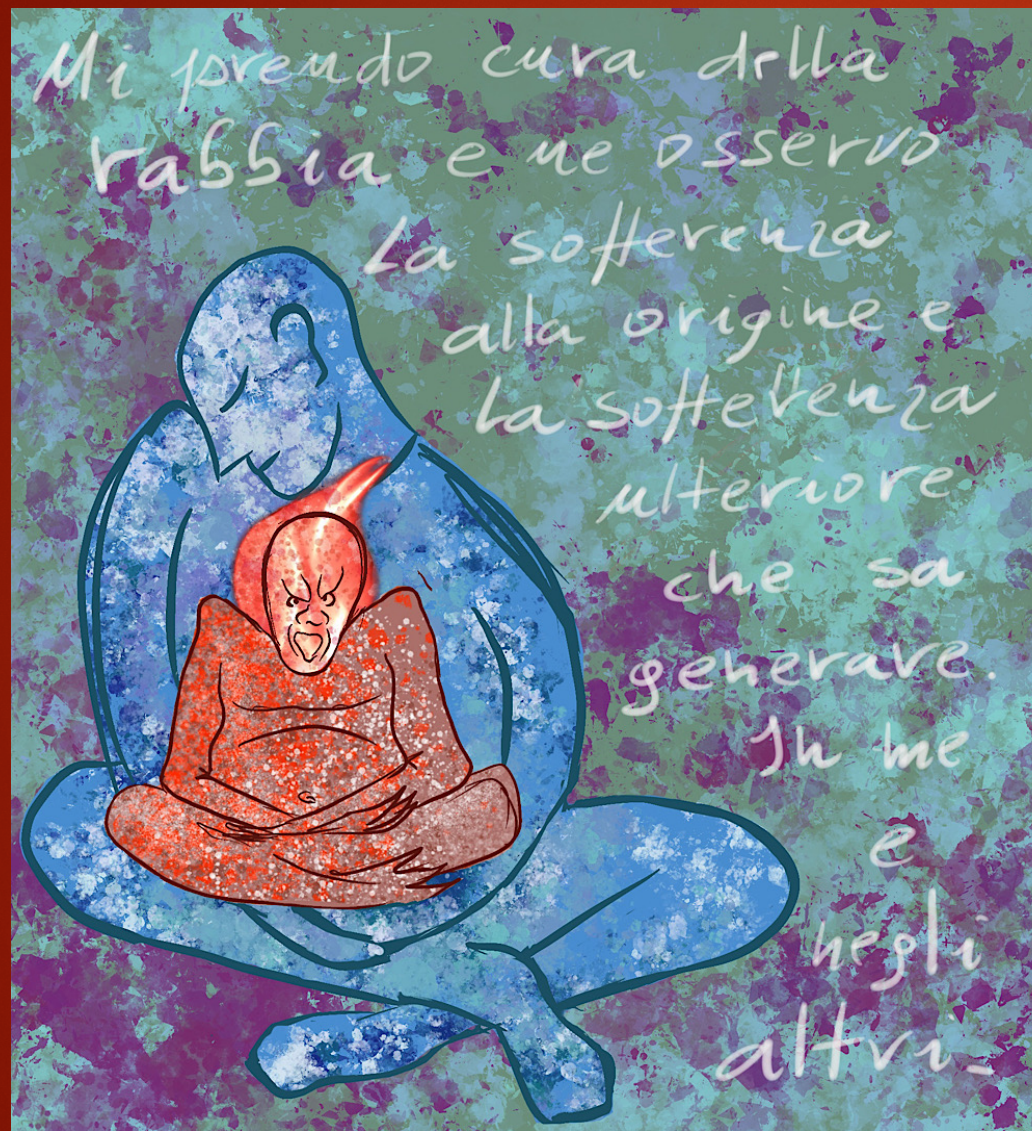 Mi prendo cura della
rabbia e ne osservo
La sofferenza
alla origine e
La sofferenza
ulteriore
che sa
generare.
In me
e
negli
altri-